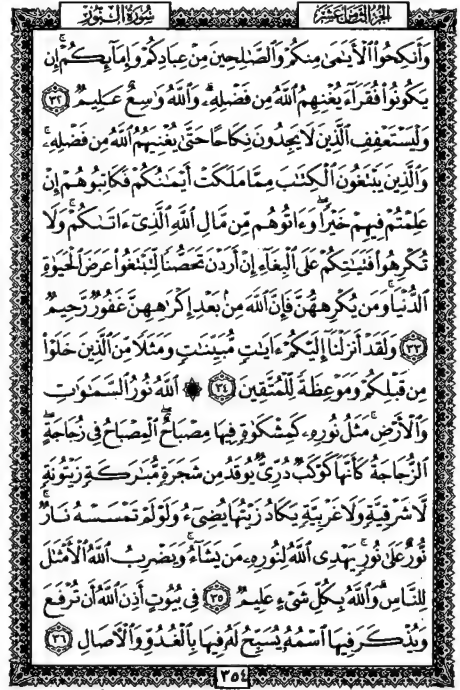 سُورَةُ النُّورِ
الجُزْءُ الثَّامِنَ عَشَرَ
وَأَنكِحُوا۟ ٱلْأَيَٰمَىٰ مِنكُمْ وَٱلصَّٰلِحِينَ مِنْ عِبَادِكُمْ وَإِمَآئِكُمْ ۚ إِن
يَكُونُوا۟ فُقَرَآءَ يُغْنِهِمُ ٱللَّهُ مِن فَضْلِهِۦ ۗ وَٱللَّهُ وَٰسِعٌ عَلِيمٌ ٣٢
وَلْيَسْتَعْفِفِ ٱلَّذِينَ لَا يَجِدُونَ نِكَاحًا حَتَّىٰ يُغْنِيَهُمُ ٱللَّهُ مِن فَضْلِهِۦ ۗ
وَٱلَّذِينَ يَبْتَغُونَ ٱلْكِتَٰبَ مِمَّا مَلَكَتْ أَيْمَٰنُكُمْ فَكَاتِبُوهُمْ إِنْ
عَلِمْتُمْ فِيهِمْ خَيْرًا ۖ وَءَاتُوهُم مِّن مَّالِ ٱللَّهِ ٱلَّذِىٓ ءَاتَىٰكُمْ ۚ وَلَا
تُكْرِهُوا۟ فَتَيَٰتِكُمْ عَلَى ٱلْبِغَآءِ إِنْ أَرَدْنَ تَحَصُّنًا لِّتَبْتَغُوا۟ عَرَضَ ٱلْحَيَوٰةِ
ٱلدُّنْيَا ۚ وَمَن يُكْرِههُّنَّ فَإِنَّ ٱللَّهَ مِنۢ بَعْدِ إِكْرَٰهِهِنَّ غَفُورٌ رَّحِيمٌ
٣٣ وَلَقَدْ أَنزَلْنَآ إِلَيْكُمْ ءَايَٰتٍ مُّبَيِّنَٰتٍ وَمَثَلًا مِّنَ ٱلَّذِينَ خَلَوْا۟
مِن قَبْلِكُمْ وَمَوْعِظَةً لِّلْمُتَّقِينَ ٣٤ ۞ ٱللَّهُ نُورُ ٱلسَّمَٰوَٰتِ
وَٱلْأَرْضِ ۚ مَثَلُ نُورِهِۦ كَمِشْكَوٰةٍ فِيهَا مِصْبَاحٌ ۖ ٱلْمِصْبَاحُ فِى زُجَاجَةٍ ۖ
ٱلزُّجَاجَةُ كَأَنَّهَا كَوْكَبٌ دُرِّىٌّ يُوقَدُ مِن شَجَرَةٍ مُّبَٰرَكَةٍ زَيْتُونَةٍ
لَّا شَرْقِيَّةٍ وَلَا غَرْبِيَّةٍ يَكَادُ زَيْتُهَا يُضِىٓءُ وَلَوْ لَمْ تَمْسَسْهُ نَارٌ ۚ
نُّورٌ عَلَىٰ نُورٍ ۗ يَهْدِى ٱللَّهُ لِنُورِهِۦ مَن يَشَآءُ ۚ وَيَضْرِبُ ٱللَّهُ ٱلْأَمْثَٰلَ
لِلنَّاسِ ۗ وَٱللَّهُ بِكُلِّ شَىْءٍ عَلِيمٌ ٣٥ فِى بُيُوتٍ أَذِنَ ٱللَّهُ أَن تُرْفَعَ
وَيُذْكَرَ فِيهَا ٱسْمُهُۥ يُسَبِّحُ لَهُۥ فِيهَا بِٱلْغُدُوِّ وَٱلْءَاصَالِ ٣٦
٣٥٤